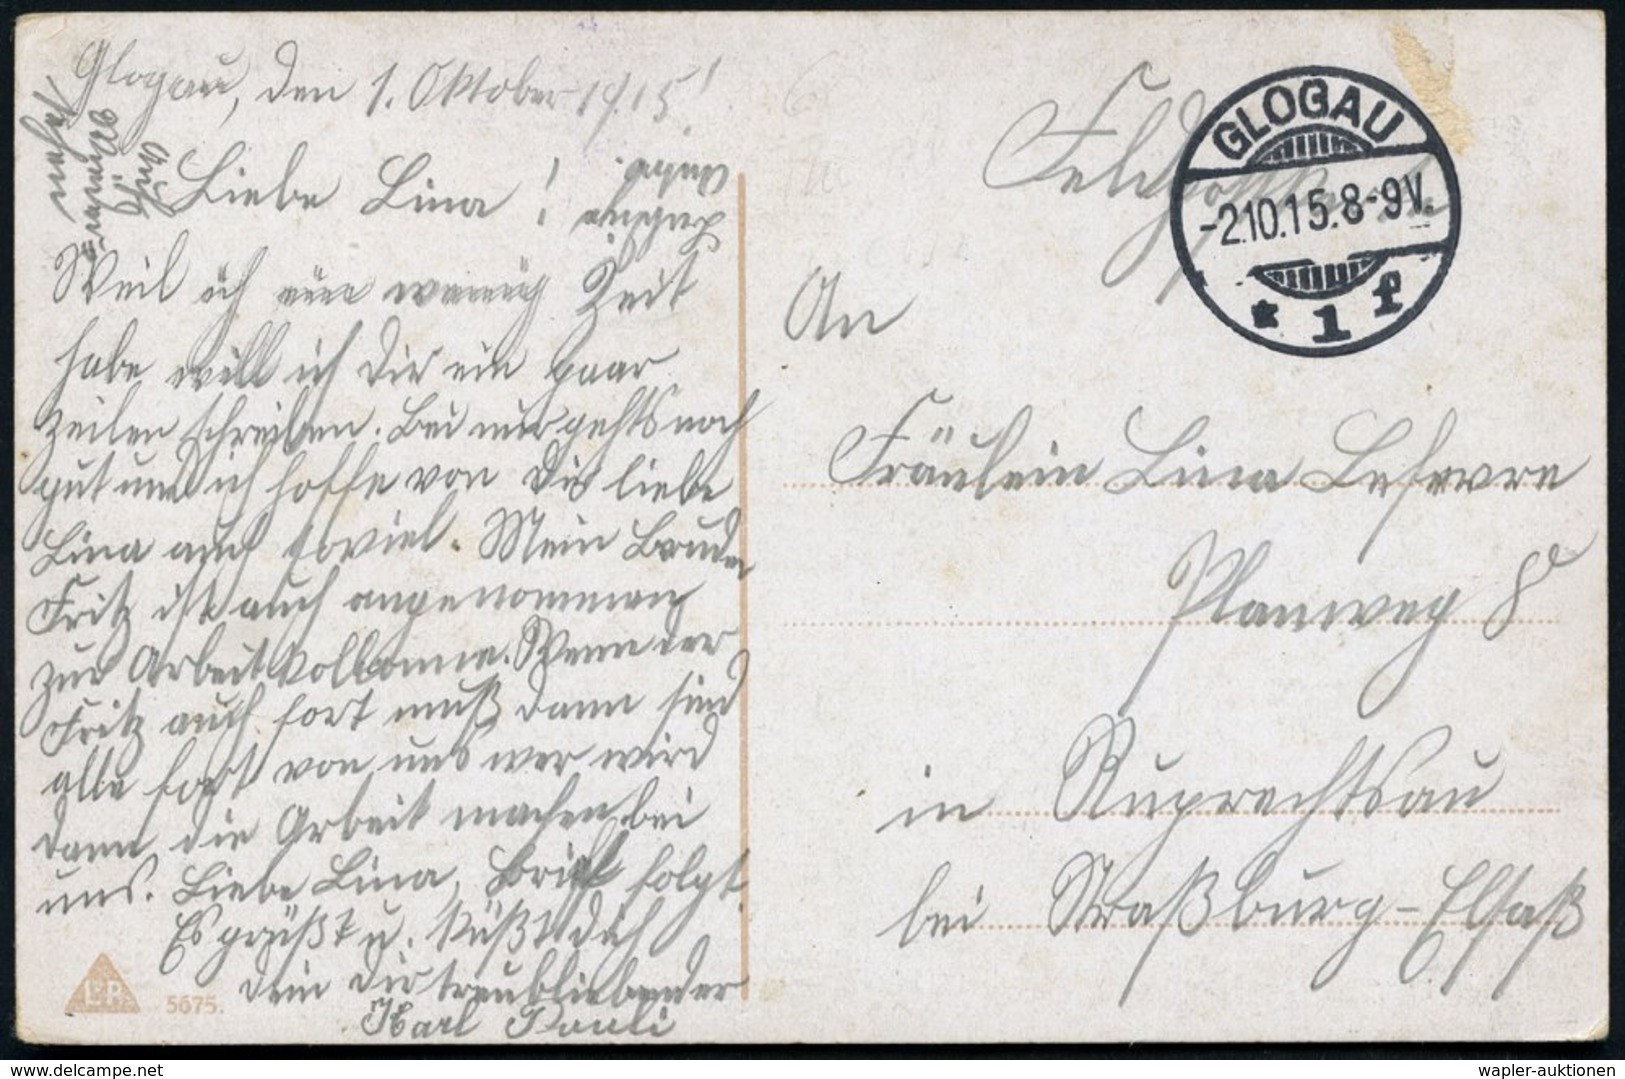 Glogau, den 1. Oktober 1915!
Liebe Lina!
Weil ich nur wenig Zeit
habe will ich Dir ein paar
Zeilen schreiben. Bei mir gehts noch
gut und ich hoffe von Dir liebe
Lina auch soviel. Mein Bruder
Fritz ist auch angenommen
zur Arbeitkollonne. Wenn der
Fritz auch fort muß dann sind
alle fort von uns wer wird
dann die Arbeit machen bei
uns. Liebe Lina, Brief folgt.
Es grüßt u. küßt dich
dein dir treubliebender
Karl Pauli
L&P
5675.
Feldpostkarte
GLOGAU
-2.10.15.8-9V.
* 1 f
An
Fräulein Lina Lefevre
Planweg 8
in Ruprechtsau
bei Straßburg-Elsaß
www.delcampe.net
wapler-auktionen